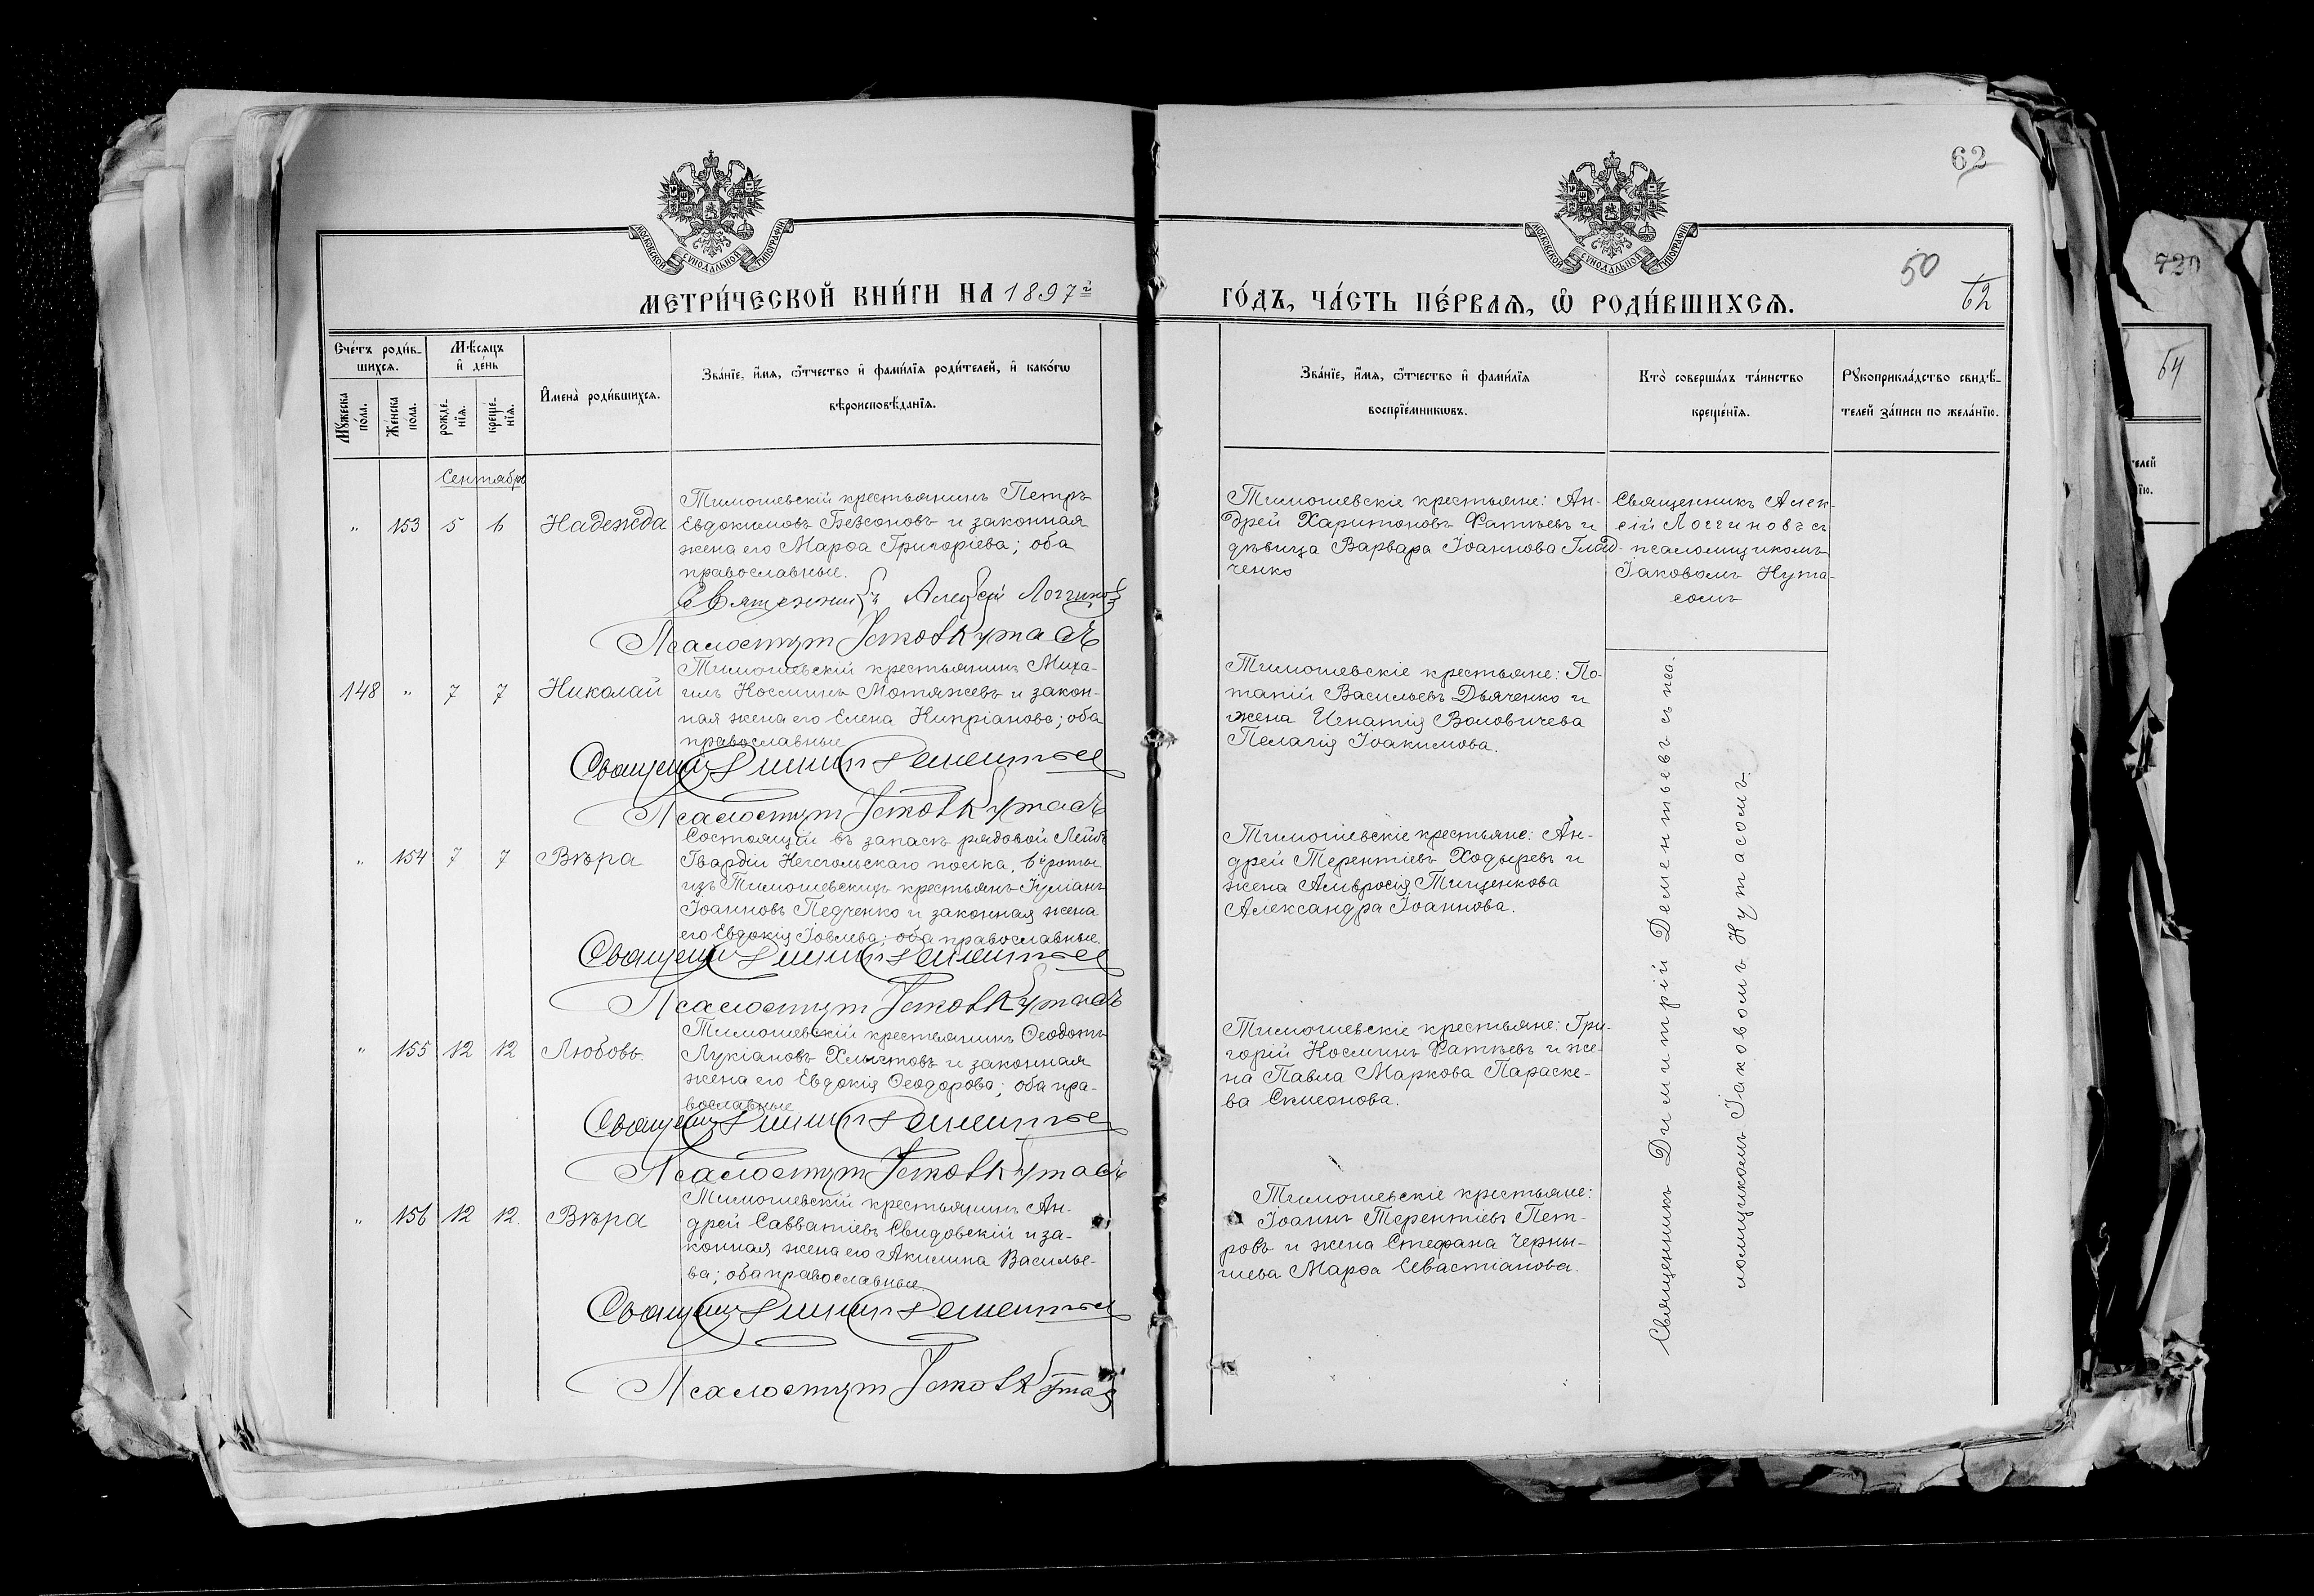 62
МОСКОВСКОЙ СУНОДАЛЬНОЙ ТИПОГРАФІИ
МОСКОВСКОЙ СУНОДАЛЬНОЙ ТИПОГРАФІИ
МЕТРИ́ЧЕСКОЙ КНИ́ГИ НА 1897 г
ГО́ДЪ, ЧА́СТЬ ПЕ́РВАѦ, Ѽ РОДИ́ВШИХСѦ.
50
62
Сче́тъ роди́в-
шихсѧ.
Мѣ́сѧцъ
и҆ де́нь
Мꙋ́жеска
по́ла.
Же́нска
по́ла.
рожде́-
нїѧ.
креще́-
нїѧ.
И҆мена̀ роди́вшихсѧ.
Зва́нїе, и҆́мѧ, ѻ҆́тчество и҆ фами́лїѧ роди́телей, и҆ како́гѡ
вѣроисповѣ́данїѧ.
Зва́нїе, и҆́мѧ, ѻ҆́тчество и҆ фами́лїѧ
воспрїе́мникѡвъ.
Кто̀ соверша́лъ та́инство
креще́нїѧ.
Рꙋкоприкла́дство свидѣ́-
телей за́писи по жела́нїю.
Сентябрь
„ 153 5 6 Надежда
Тимошевскій крестьянинъ Петръ
Евдокимовъ Безсоновъ и законная
жена его Марѳа Григоріева; оба
православные.
Священникъ Алексѣй Логгиновъ
Псаломщикъ Іаковъ Кутасъ
Тимошевскіе крестьяне: Ан-
дрей Харитоновъ Фатѣевъ и
дѣвица Варвара Іоаннова Глад-
ченко
Священникъ Алек-
сій Логгиновъ съ
псаломщикомъ
Іаковомъ Кута-
сомъ
148 „ 7 7 Николай
Тимошевскій крестьянинъ Миха-
илъ Косминъ Мотяжевъ и закон-
ная жена его Елена Кипріанова; оба
православные
Священникъ Димитрій Дементьевъ
Псаломщикъ Іаковъ Кутасъ
Тимошевскіе крестьяне: По-
тапій Васильевъ Дьяченко и
жена Игнатія Воловичева
Пелагія Іоакимова.
„ 154 7 7 Вѣра
Состоящій въ запасѣ рядовой Лейбъ
Гвардіи Кегсгольмскаго полка, 6й роты
изъ Тимошевскихъ крестьянъ Іуліанъ
Іоанновъ Педченко и законная жена
его Евдокія Іовлева; оба православные.
Священникъ Димитрій Дементьевъ
Псаломщикъ Іаковъ Кутасъ
Тимошевскіе крестьяне: Ан-
дрей Терентіевъ Ходыревъ и
жена Амвросія Тищенкова
Александра Іоаннова.
„ 155 12 12 Любовь.
Тимошевскій крестьянинъ Ѳеодотъ
Лукіановъ Хлыстовъ и законная
жена его Евдокія Ѳеодорова; оба пра-
вославные
Священникъ Димитрій Дементьевъ
Псаломщикъ Іаковъ Кутасъ
Тимошевскіе крестьяне: Гри-
горій Косминъ Фатѣевъ и же-
на Павла Маркова Параске-
ва Симеонова.
„ 156 12 12. Вѣра
Тимошевскій крестьянинъ Ан-
дрей Савватіевъ Свидовскій и за-
конная жена его Акилина Василье-
ва; оба православные
Священникъ Димитрій Дементьевъ
Псаломщикъ Іаковъ Кутасъ
Тимошевскіе крестьяне:
Іоаннъ Терентіевъ Пет-
ровъ и жена Стефана Черны-
шева Марѳа Севастіанова.
Священникъ Димитрій Дементьевъ съ пса-
ломщикомъ Іаковомъ Кутасомъ.
720
64
телей
їю.